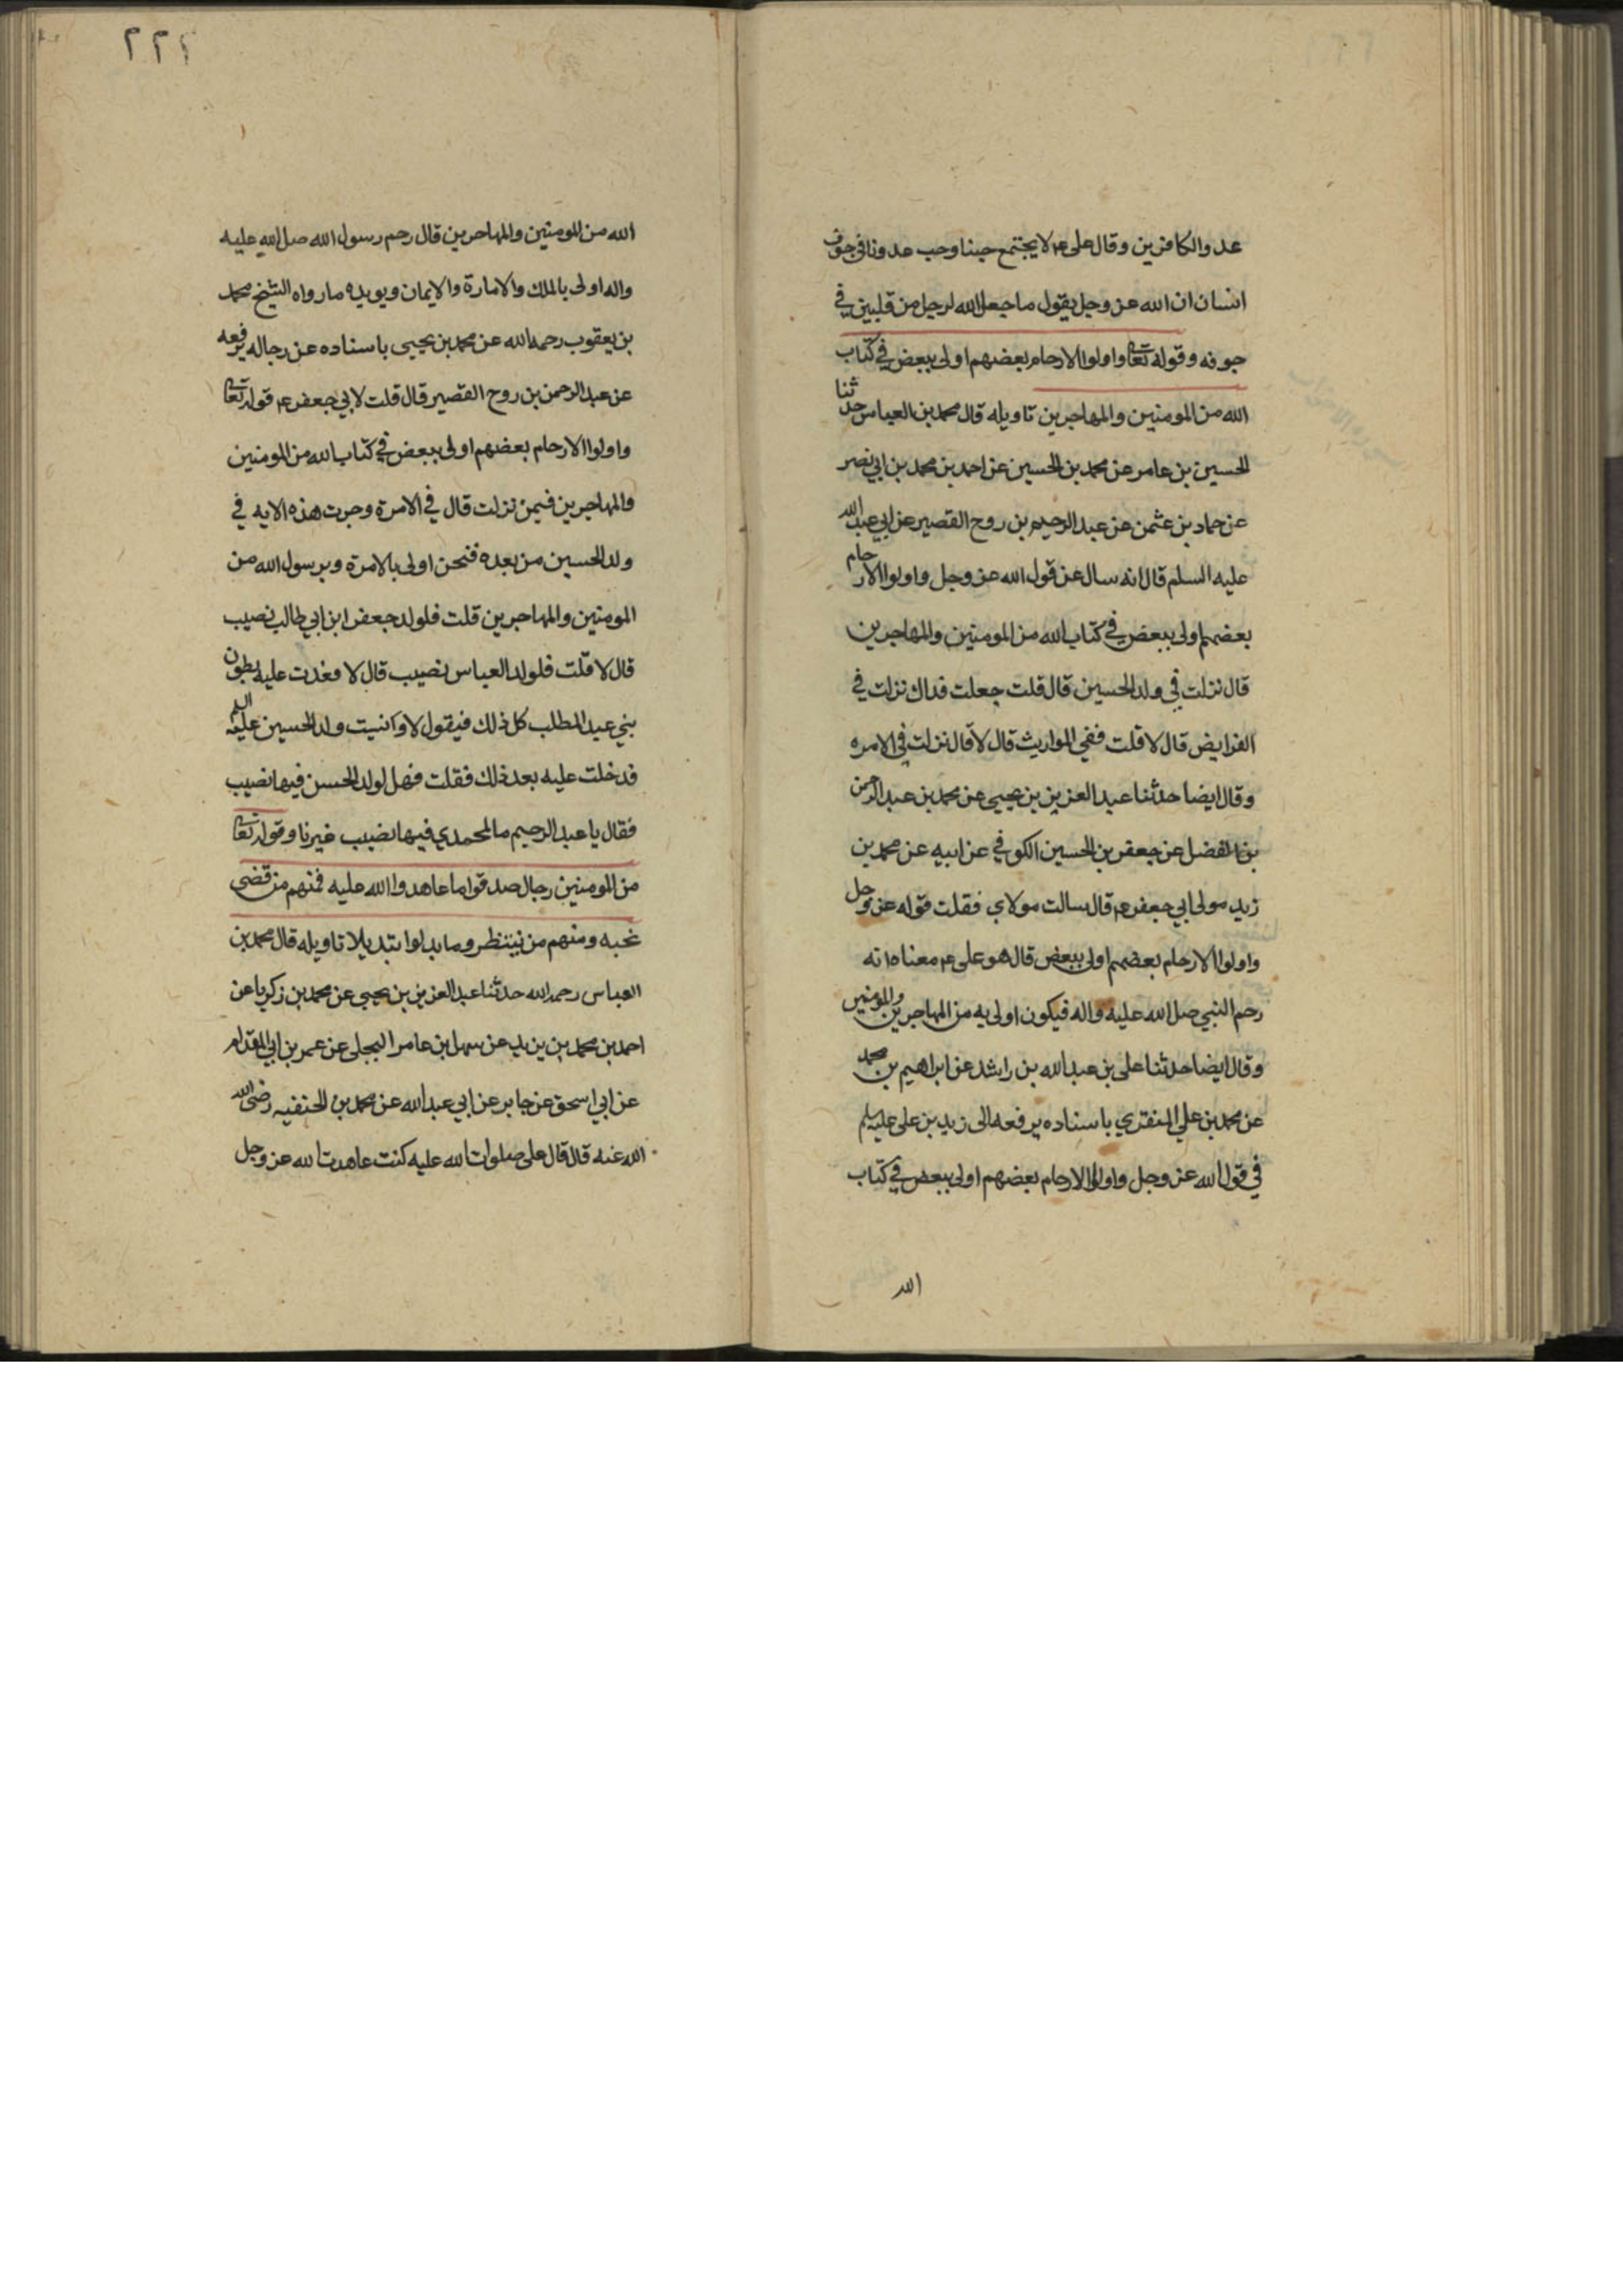 عدو الكافرين وقال على ع۴ لا يجتمع حبنا وحب عدونا في جوف
انسان ان الله عز وجل يقول ما جعل الله لرجل من قلبين في
جوفه وقوله تعا واولوا الارحام بعضهم اولى ببعض في كتاب
الله من المومنين والمهاجرين تاويله قال محمد بن العباس حدثنا
الحسين بن عامر عن محمد بن الحسين عن احمد بن محمد بن ابي نصر
عن حماد بن عثمن عن عبد الرحيم بن روح القصير عن ابي عبد الله
عليه السلم قال انه سال عن قول الله عز وجل واولوا الارحام
بعضهم اولى ببعض في كتاب الله من المومنين والمهاجرين
قال نزلت في ولد الحسين قال قلت جعلت فداك نزلت في
الفرايض قال لا قلت ففي المواريث قال لا قال نزلت في الامره
وقال ايضا حدثنا عبد العزيز بن يحيى عن محمد بن عبد الرحمن
بن الفضل عن جعفر بن الحسين الكوفي عن ابيه عن محمد بن
زيد مولى ابي جعفر ع۴ قال سالت مولاي فقلت قوله عز وجل
واولوا الارحام بعضهم اولى ببعض قال هو على ع۴ معناه انه
رحم النبي صل الله عليه واله فيكون اولى به من المهاجرين والمومنين
وقال ايضا حدثنا على بن عبد الله بن راشد عن ابراهيم بن محمد
عن محمد بن علي المنقري باسناده يرفعه الى زيد بن على عليه سلم
في قول الله عز وجل واولوا الارحام بعضهم اولى ببعض في كتاب
الله
٢٢٤
الله من المومنين والمهاجرين قال رحم رسول الله صل الله عليه
واله اولى بالملك والامارة والايمان ويويده ما رواه الشيخ محمد
بن يعقوب رحمه الله عن محمد بن يحيى باسناده عن رجاله يرفعه
عن عبد الرحمن بن روح القصير قال قلت لابي جعفر ع۴ قوله تعا
واولوا الارحام بعضهم اولى ببعض في كتاب الله من المومنين
والمهاجرين فيمن نزلت قال في الامرة وجرت هذه الايه في
ولد الحسين من بعده فنحن اولى بالامرة وبرسول الله من
المومنين والمهاجرين قلت فلولد جعفر ابن ابي طالب نصيب
قال لا قلت فلولد العباس نصيب قال لا فعدت عليه بطون
بني عبد المطلب كل ذلك فيقول لا وانسيت ولد الحسين عليه السلم
فدخلت عليه بعد ذلك فقلت فهل لولد الحسن فيها نصيب
فقال يا عبد الرحيم ما لمحمدي فيها نصيب غيرنا وقوله تعا
من المومنين رجال صدقوا ما عاهدوا الله عليه فمنهم من قضى
نحبه ومنهم من ينتظر وما بدلوا تبديلا تاويله قال محمد بن
العباس رحمه الله حدثنا عبد العزيز بن يحيى عن محمد بن زكريا عن
احمد بن محمد بن يزيد عن سهل ابن عامر البجلى عن عمر بن ابي المقدام
عن ابي اسحق عن جابر عن ابي عبد الله عن محمد بن الحنفيه رضى الله
الله عنه قال قال على صلوات الله عليه كنت عاهدت الله عز وجل